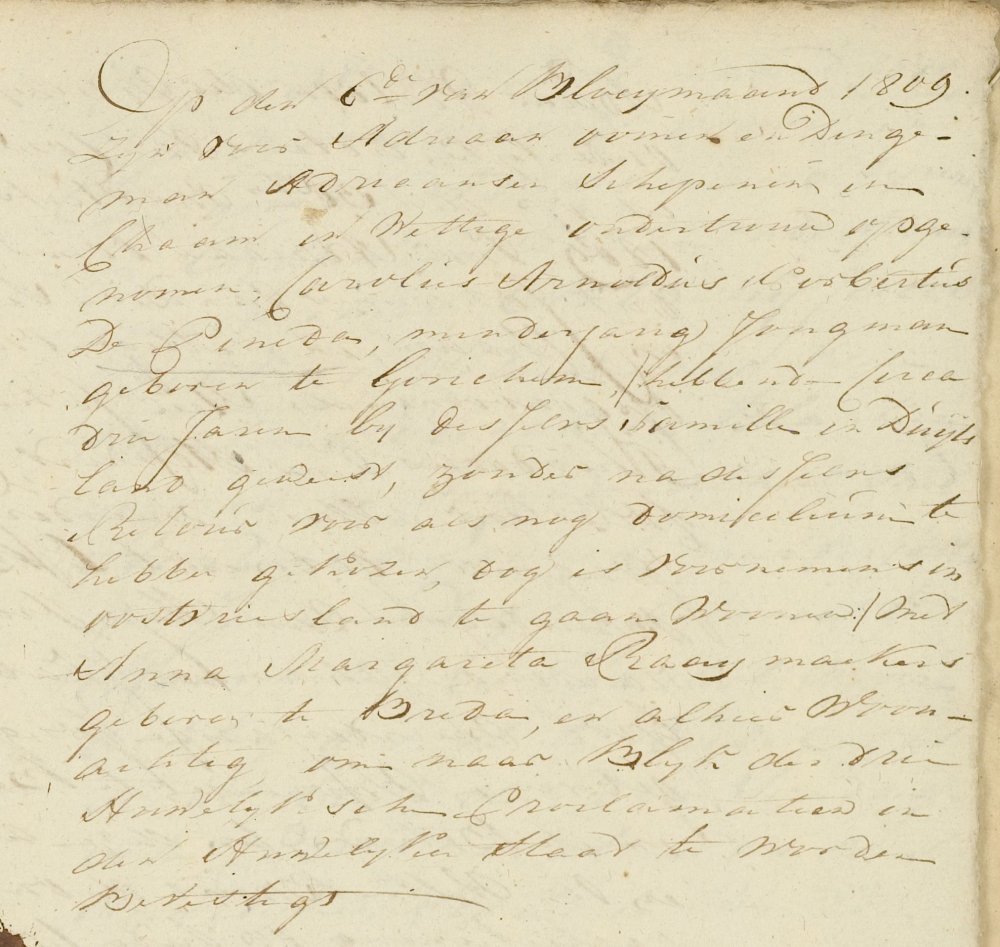 Op den 6de van Bloeymaand 1809.
Zyn voor Adriaan oomen en Dinge-
man Adriaansen Schepenen in
Chaam in Wettige ondertrouw opge-
nomen, Carolus Arnoldus Norbertus
De Pineda, minderjarig Jongman
geboren te Gorichem, /hebbende Circa
drie Jaren by desselfs Famille in Duyts
land geweest, zonder na desselfs
Retour voor als nog domicilium te
hebben gekozen, dog is voornemens in
oostvriesland te gaan Woonen:/ Met
Anna Margareta Raaymackers
geboren te Breda, en alhier Woon-
achtig, om naar Blyk der drie
Huwelyksche Proclamatien in
den Huwelyken Staat te Worden
Bevestigt